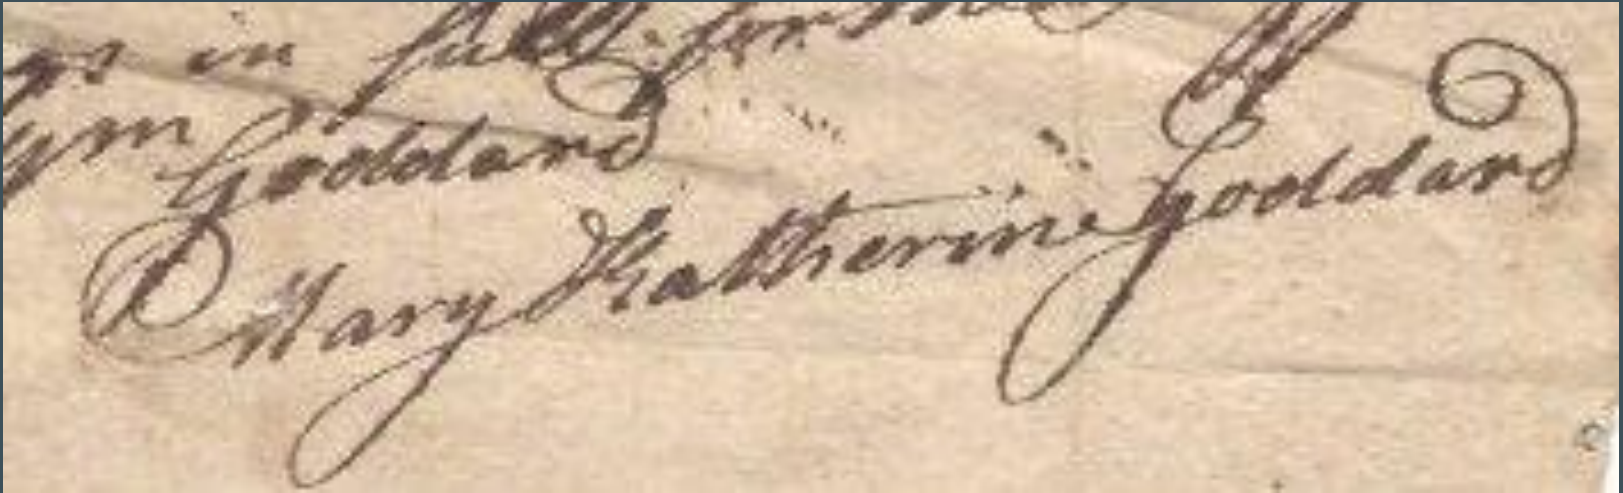 gs in full for
Wm Goddard
Mary Katherine Goddard